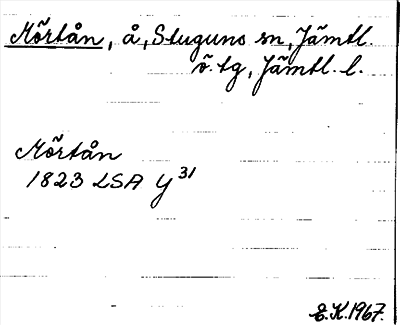 Mörtån, å, Stuguns sn, Jämtl.
ö. tg, Jämtl. l.
Mörtån
1823 LSA Y 31
E.K. 1967.